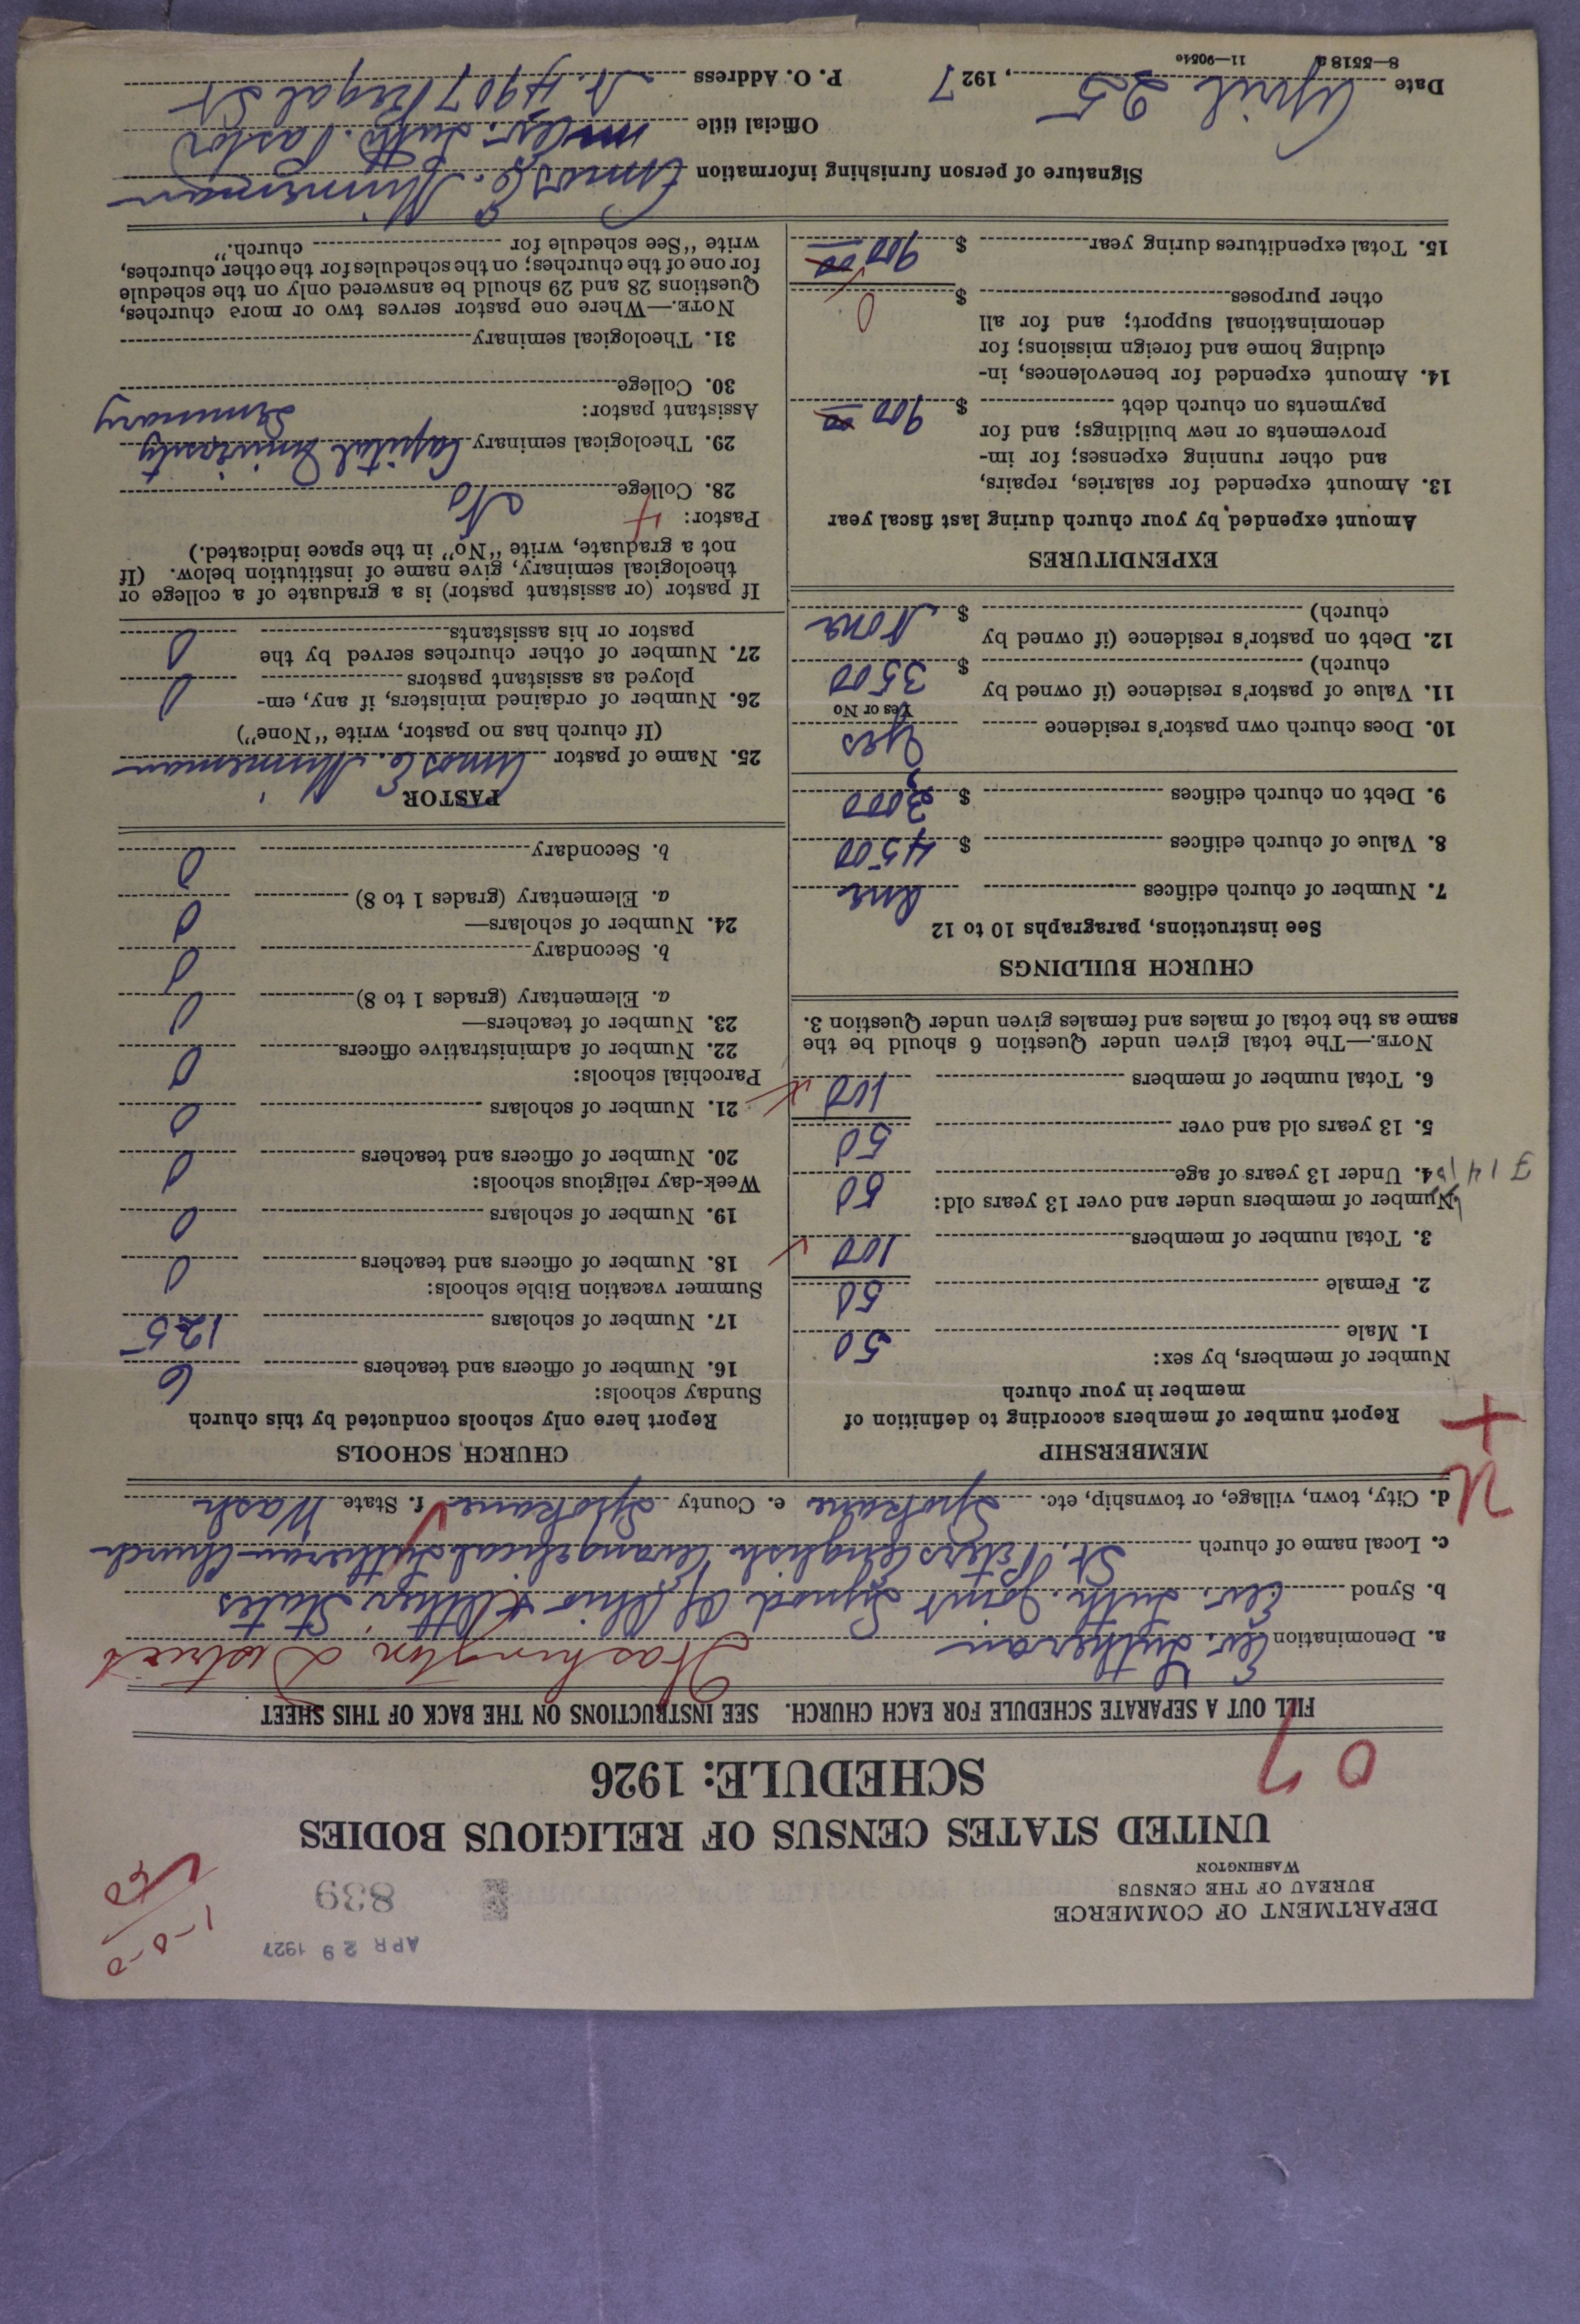 DEPARTMENT OF COMMERCE
BUREAU OF THE CENSUS
WASHINGTON
APR 29 1927
839
1-0-0
UNITED STATES CENSUS OF RELIGIOUS BODIES
SCHEDULE: 1926
07
FILL OUT A SEPARATE SCHEDULE FOR EACH CHURCH. SEE INSTRUCTIONS ON THE BACK OF THIS SHEET
a. Denomination Ev. Lutheran Washington District
b. Synod Ev. Luth. Joint Synod of Ohio & Other States
c. Local name of church St. Peters English Evangelical Lutheran Church
d. City, town, village, or township, etc. Spokane e. County Spokane f. State Wash
MEMBERSHIP
Report number of members according to definition of
member in your church
Number of members, by sex:
1. Male 50
2. Female 50
3. Total number of members 100
Number of members under and over 13 years old:
4. Under 13 years of age 50
5. 13 years old and over 50
6. Total number of members 100
NOTE.—The total given under Question 6 should be the
same as the total of males and females given under Question 3.
CHURCH BUILDINGS
See instructions, paragraphs 10 to 12
7. Number of church edifices one
8. Value of church edifices $ 4500
9. Debt on church edifices $ 3000
10. Does church own pastor's residence Yes
Yes or No
11. Value of pastor's residence (if owned by
church) $ 3500
12. Debt on pastor's residence (if owned by
church) $ None
EXPENDITURES
Amount expended by your church during last fiscal year
13. Amount expended for salaries, repairs,
and other running expenses; for im-
provements or new buildings; and for
payments on church debt $ 900 00
14. Amount expended for benevolences, in-
cluding home and foreign missions; for
denominational support; and for all
other purposes $ 0
15. Total expenditures during year $ 900 00
CHURCH SCHOOLS
Report here only schools conducted by this church
Sunday schools:
16. Number of officers and teachers 6
17. Number of scholars 125
Summer vacation Bible schools:
18. Number of officers and teachers 0
19. Number of scholars 0
Week-day religious schools:
20. Number of officers and teachers 0
21. Number of scholars 0
Parochial schools:
22. Number of administrative officers 0
23. Number of teachers—
a. Elementary (grades 1 to 8) 0
b. Secondary 0
24. Number of scholars—
a. Elementary (grades 1 to 8) 0
b. Secondary 0
PASTOR
25. Name of pastor Amos E. Minneman
(If church has no pastor, write "None")
26. Number of ordained ministers, if any, em-
ployed as assistant pastors 0
27. Number of other churches served by the
pastor or his assistants 0
If pastor (or assistant pastor) is a graduate of a college or
theological seminary, give name of institution below. (If
not a graduate, write "No" in the space indicated.)
Pastor:
28. College No
29. Theological seminary Capital University
Seminary
Assistant pastor:
30. College
31. Theological seminary
NOTE.—Where one pastor serves two or more churches,
Questions 28 and 29 should be answered only on the schedule
for one of the churches; on the schedules for the other churches,
write "See schedule for church."
Signature of person furnishing information Amos E. Minneman
Official title Ev. Luth. Pastor
Date April 25, 1927 P. O. Address N. 4907 Regal St
8—5518a 11—9051c